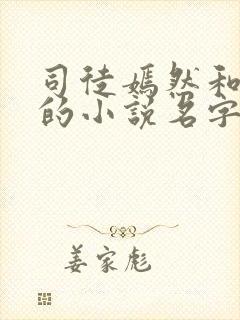 司徒嫣然和
的小说名字
姜家彪